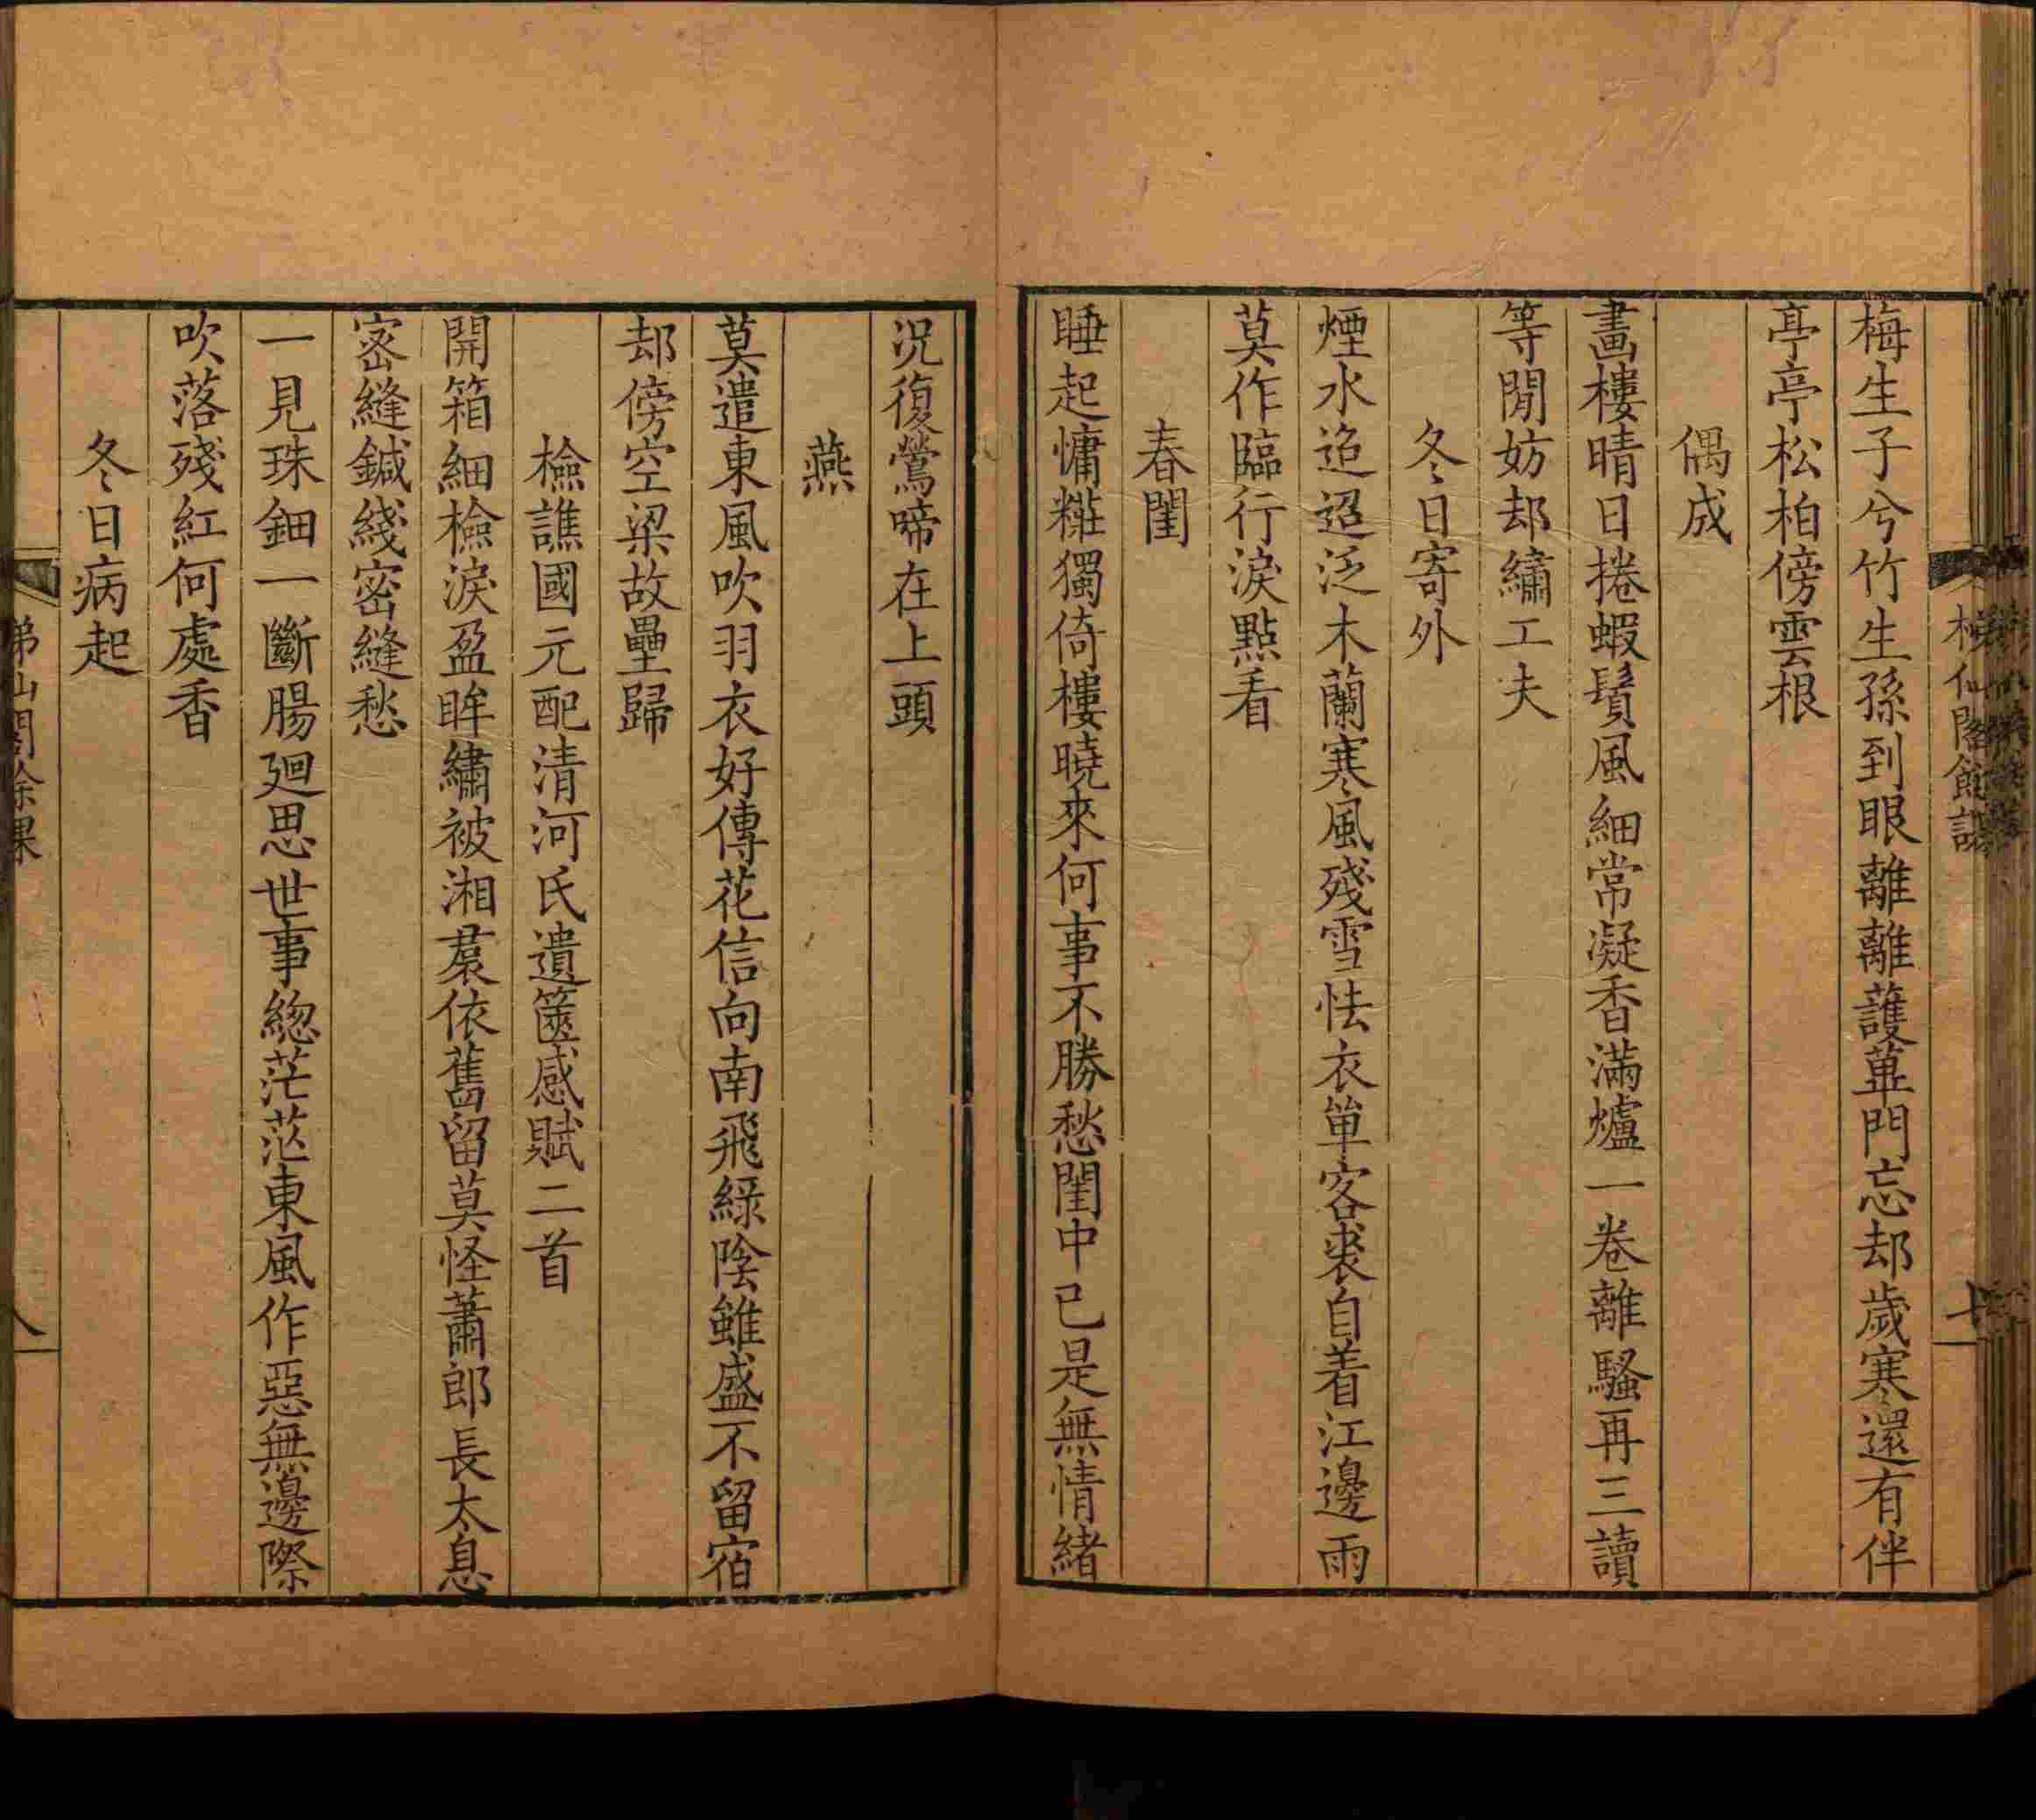 梅生子兮竹生孫到眼離離蔓蓽門忘却歲寒還有伴
亭亭松柏傍雲根
偶成
畫樓晴日捲蝦鬚風細常凝香滿爐一卷離騷再三讀
等閒妨却繡工夫
冬日寄外
煙水迢迢泛木蘭寒風殘雪怯衣單客裘自着江邊雨
莫作臨行淚點看
春閨
睡起慵糚獨倚樓曉來何事不勝愁閨中已是無情緒
況復鶯啼在上頭
燕
莫遣東風吹羽衣好傳花信向南飛綠陰雖盛不留宿
却傍空梁故壘歸
檢譙國元配清河氏遺篋感賦二首
開箱細檢淚盈眸繡被湘裠依舊留莫怪蕭郎長太息
密縫鍼綫密縫愁
一見珠鈿一斷腸廻思世事緫茫茫東風作惡無邊際
吹落殘紅何處香
冬日病起